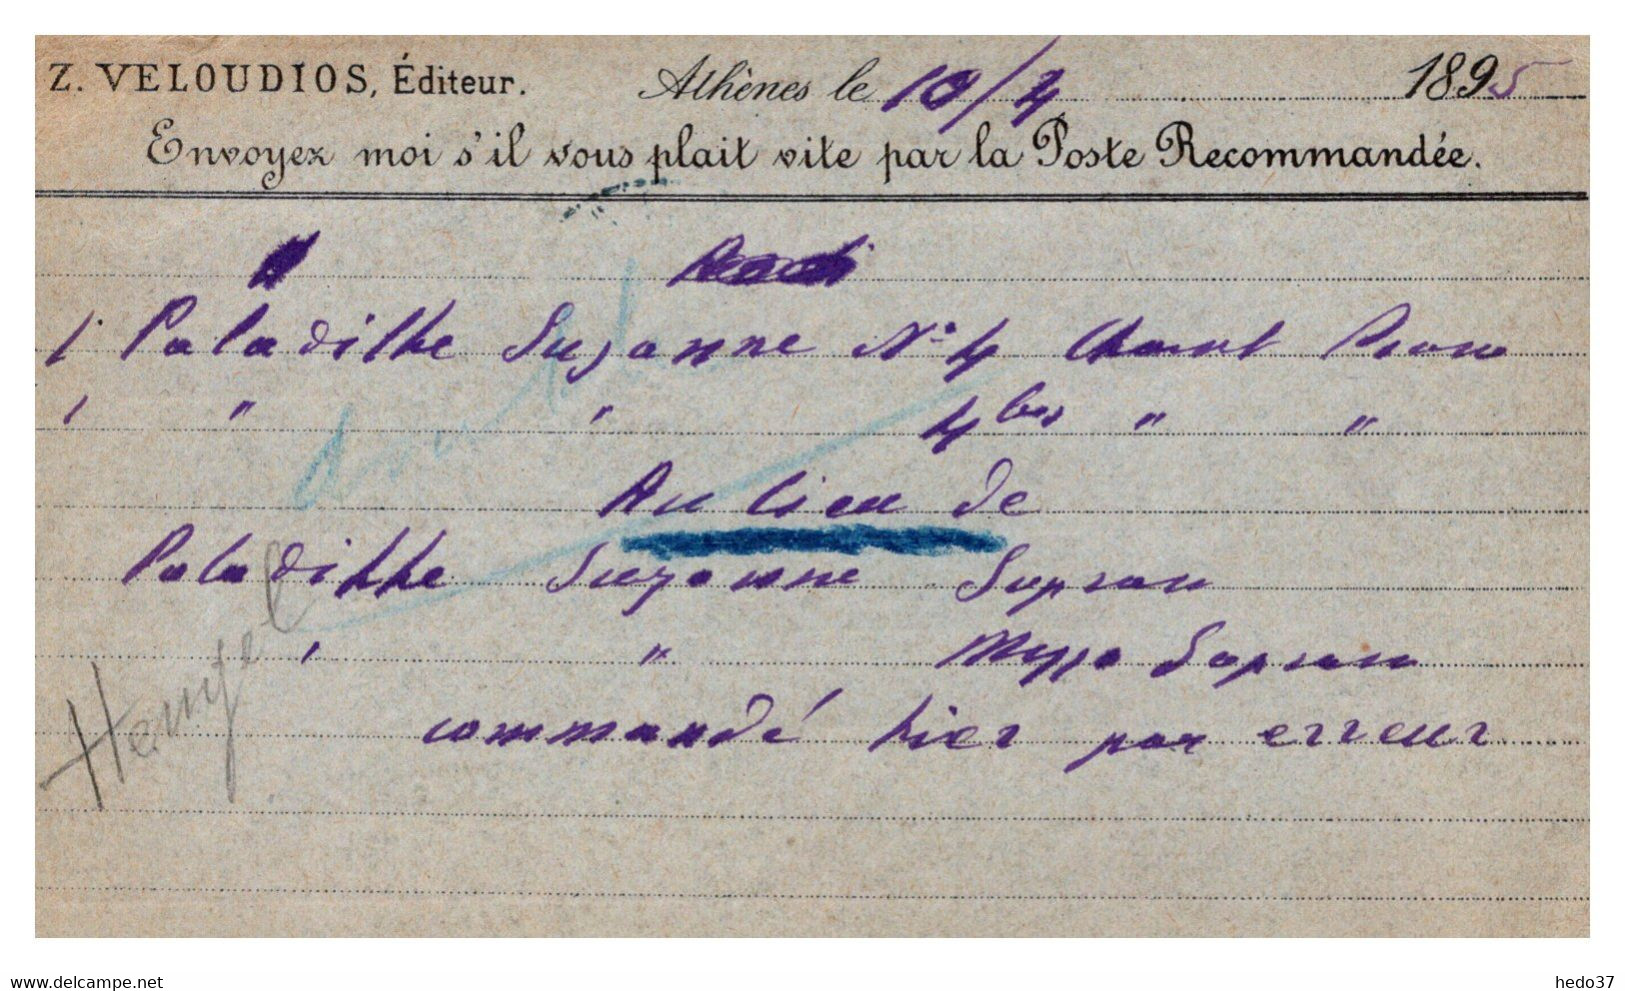 Z. VELOUDIOS, Éditeur. Athènes le 10/4 1895
Envoyez moi s'il vous plait vite par la Poste Recommandée.
1 Paladilhe Suzanne No 4 Chant Piano
1 " " 4 bis " "
Au lieu de
Paladilhe Suzanne Sopran
" " Mezzo Sopran
commandé hier par erreur
Hengel
delcampe.net
hedo37